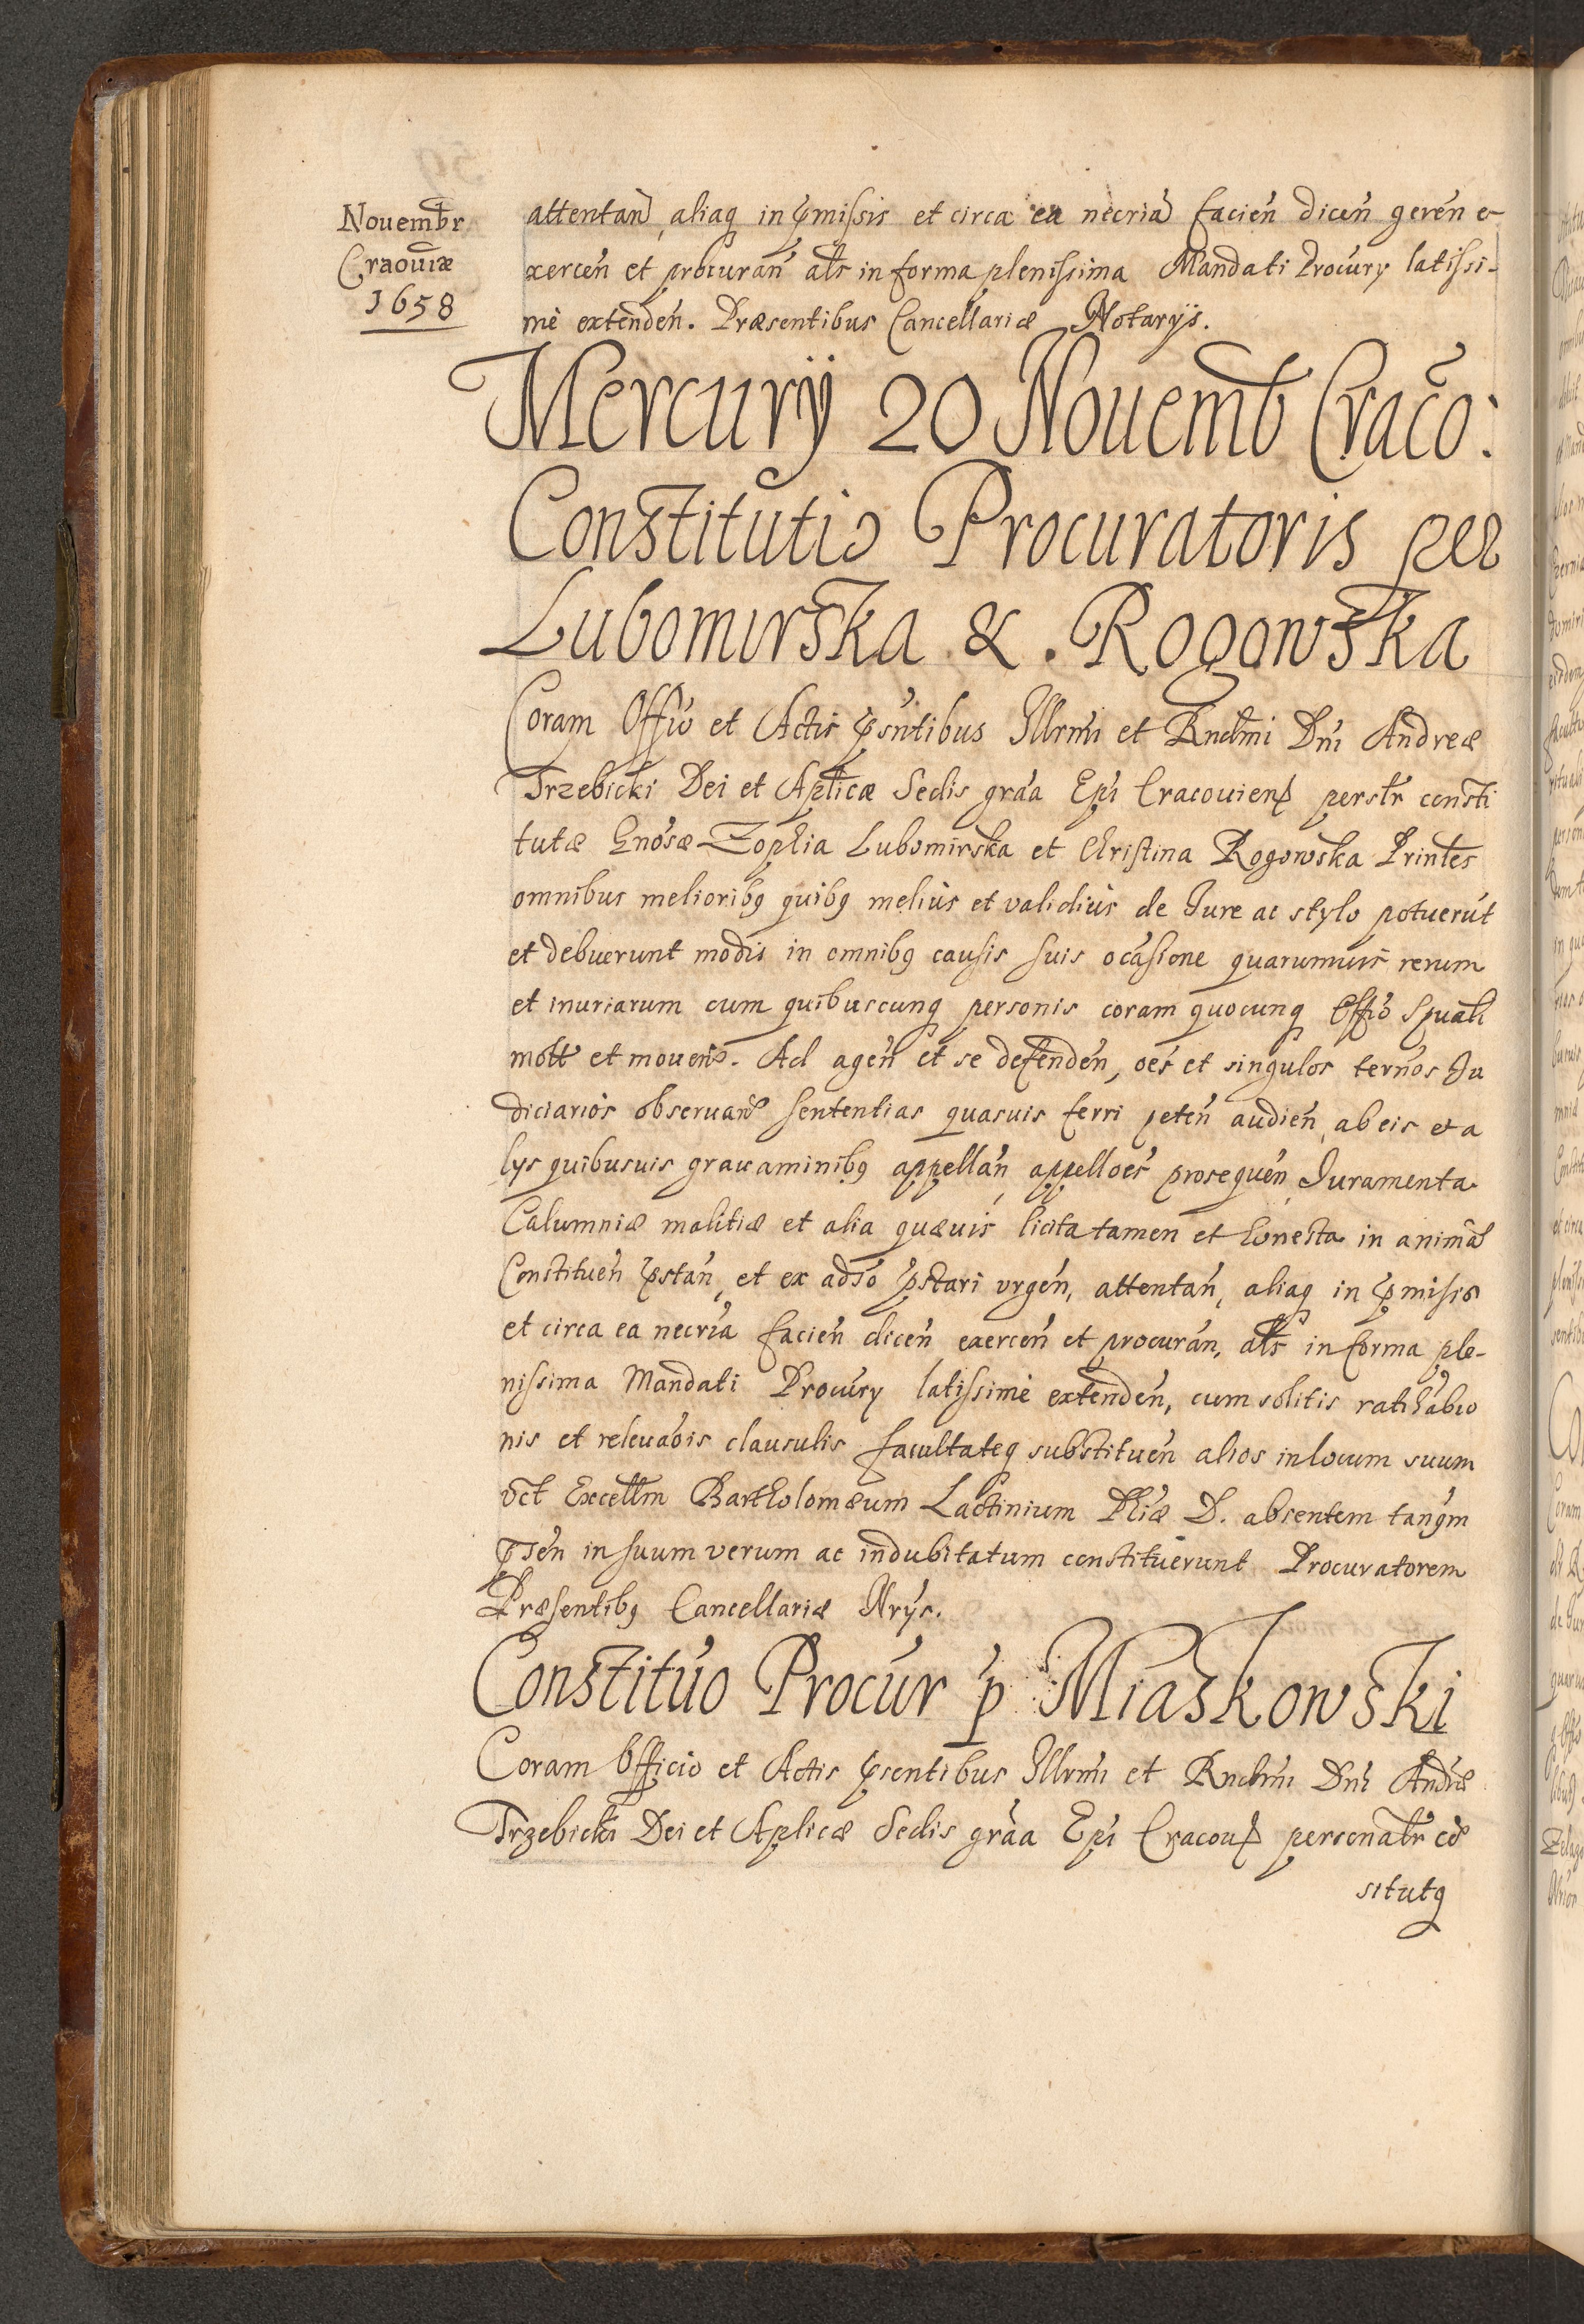 Nouembr
Cracouiæ
1658
attentan, aliaq in pmissis et circa ea necria facien dicen geren e-
xercen et procuran als in forma plenissima Mandati Procury latissi-
mè extenden. Præsentibus Cancellariæ Notarijs.
Mercurÿ 20 Nouemb Craco:
Constitutio Procuratoris per
Lubomirska & . Rogowska
Coram Offio et Actis psntibus Illrmi et Rndmi Dni Andreæ
Trzebicki Dei et Aplicæ Sedis graa Epi Cracouien perslr consti
tutæ Gnosæ Zophia Lubomirska et Christina Rogowska Printes
omnibus melioribq quibq meliùs et validiùs de Iure ac stylo potuerut
et debuerunt modis in omnibq causis suis ocasione quarumuis rerum
et iniuriarum cum quibuscunq personis coram quocunq Offio Spuali
mott et mouen. Ad agen et se defenden, oes et singulos ternos Iu
diciarios obseruan sententias quasuis ferri peten audien, ab eis et a
lys quibusuis grauaminibq appellan, appelloes prosequen, Iuramenta
Calumniæ malitiæ et alia quæuis licita tamen et honesta in anima
Constituen pstan, et ex adso pstari vrgen, attentan, aliaq in pmisis
et circa ea necria facien dicen exercen et procuran, als in forma ple-
nissima Mandati Procury latissimè extenden, cum solitis ratihabio
nis et releuaois clausulis facultateq substituen alios in locum suum
vct Excellm Bartholomæum Lactinium Phiæ D. absentem tanqm
psen in suum verum ac indubitatum constituerunt Procuratorem
Præsentibq Cancellariæ Nrys.
Constituo Procur p Miaskowski
Coram Officio et Actis psentibus Illrmi et Rndmi Dni Andræ
Trzebicki Dei et Aplicæ Sedis graa Epi Cracou personalr co
situtq